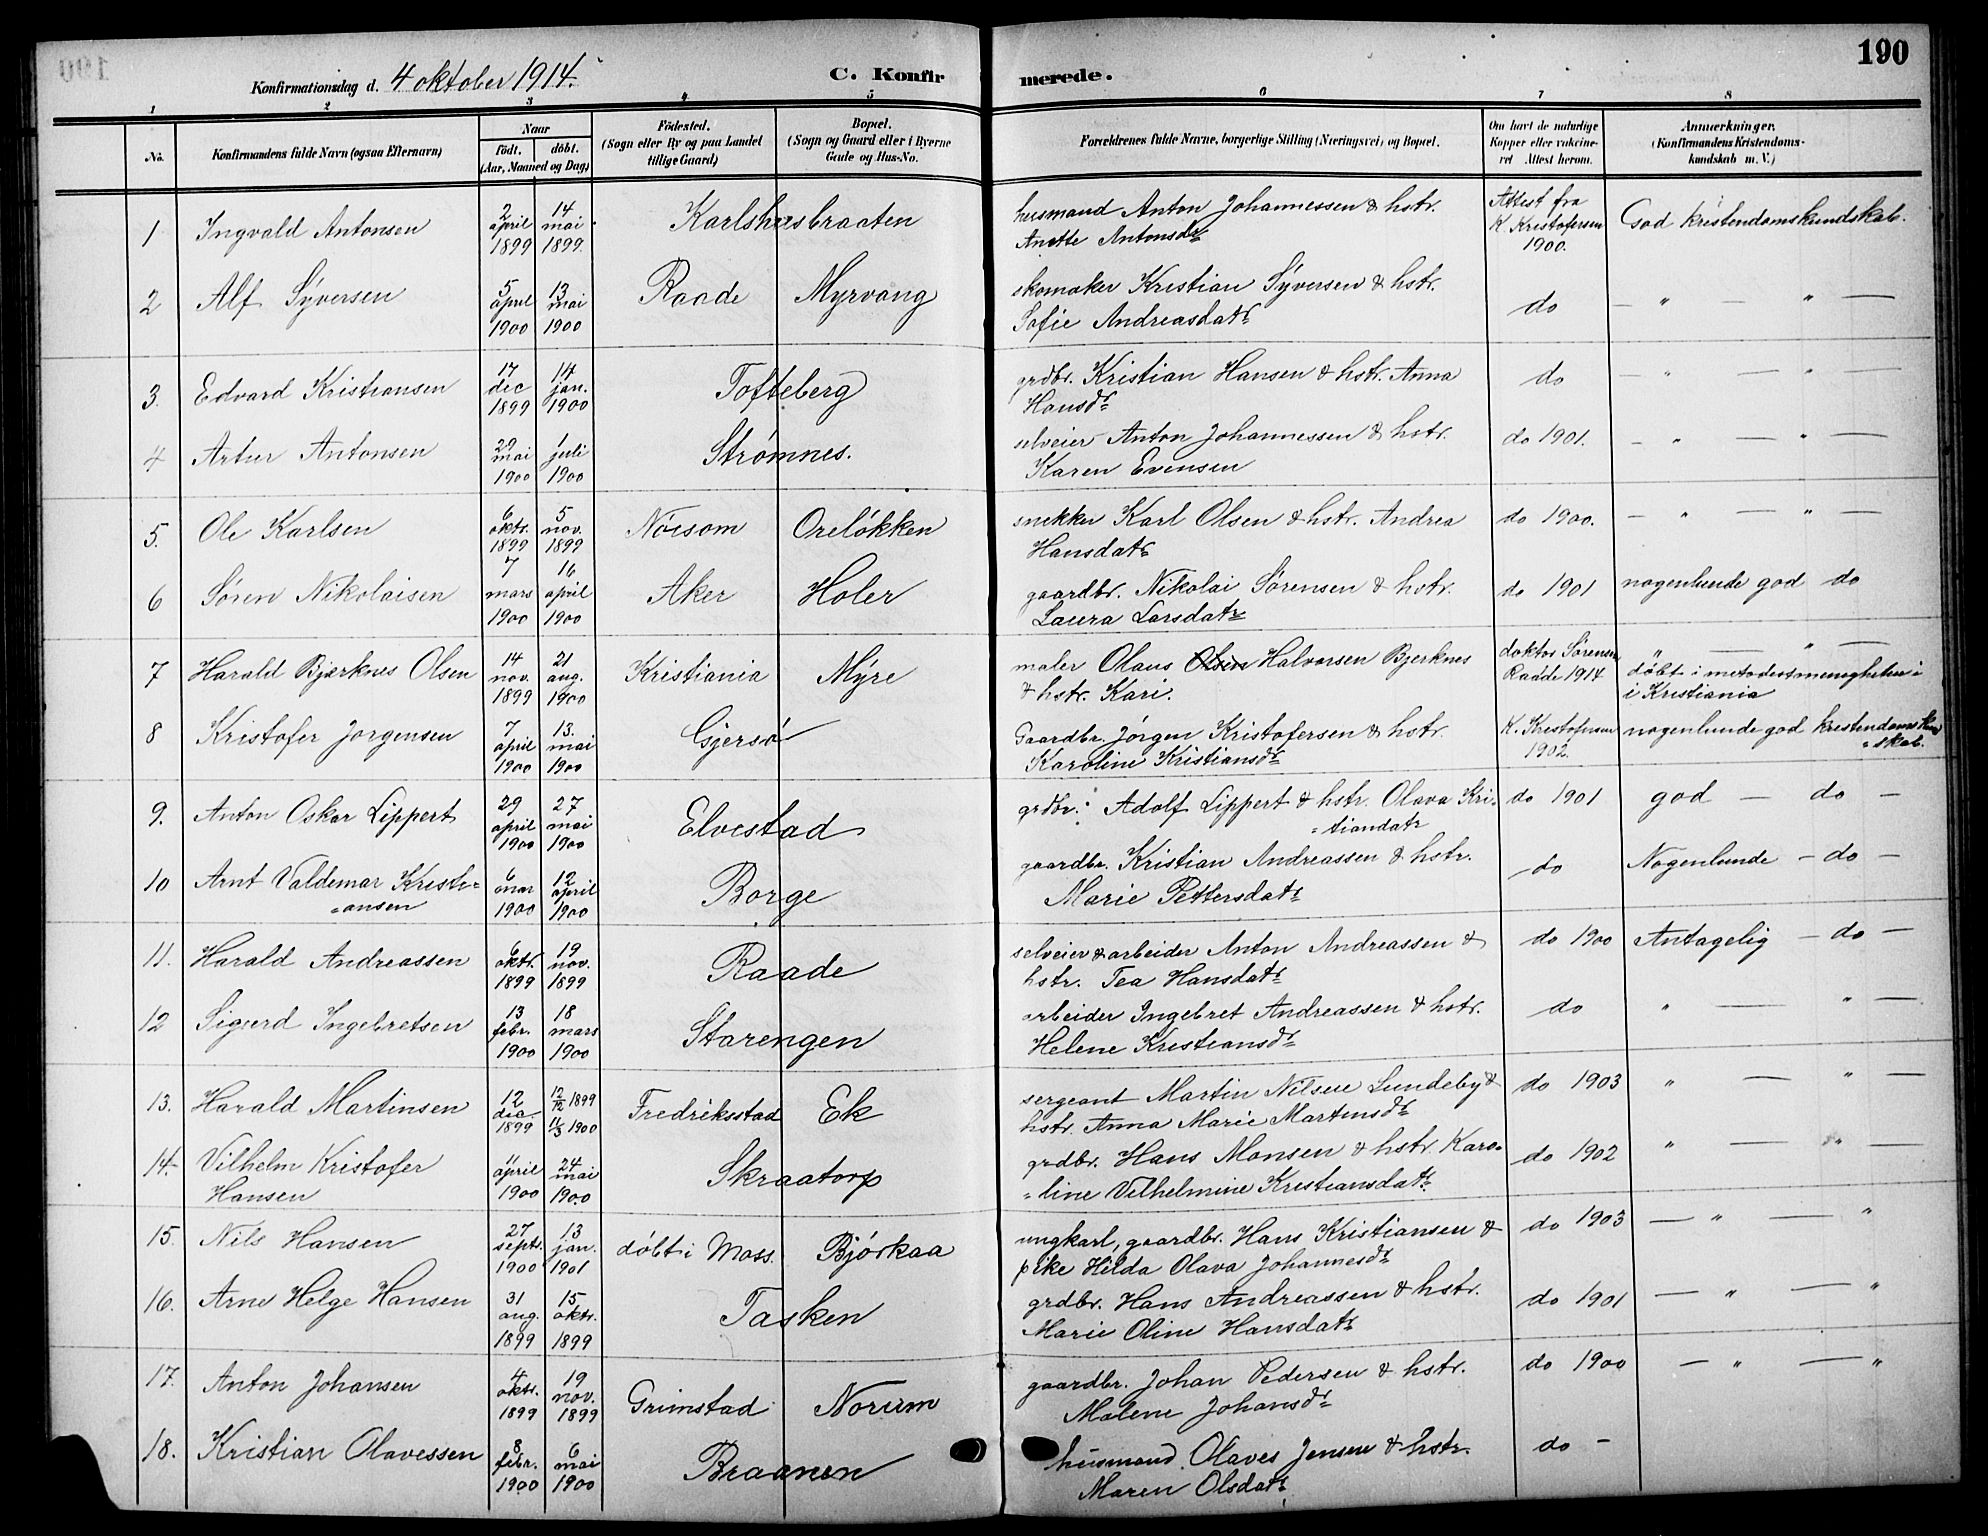 190
Konfirmationsdag d. 4 oktober 1914.
C. Konfirmerede.
1 2 3 4 5 6 7 8
No.
Konfirmandens fulde Navn (ogsaa Efternavn)
Naar
födt. döbt.
(Aar, Maaned og Dag)
Födested.
(Sogn eller By og paa Landet
tillige Gaard)
Bopæl.
(Sogn og Gaard eller i Byerne
Gade og Hus-No.
Forældrenes fulde Navne, borgerlige Stilling (Næringsvei) og Bopæl.
Om havt de naturlige
Kopper eller vakcine-
ret Attest herom.
Anmærkninger.
(Konfirmandens Kristendoms-
kundskab m. V.)
1 Ingvald Antonsen 2 april 1899 14 mai 1899. Karlshusbraaten
husmand Anton Johannessen & hstr.
Anette Antonsdr
Attest fra
K. Kristofersen
1900.
God kristendomskundskab.
2 Alf Syversen 5 april 1900 13 mai 1900 Raade Myrvang
skomaker Kristian Syversen & hstr.
Sofie Andreasdatr
do — " — " —
3. Edvard Kristiansen 17 dec 1899 14 jan. 1900 Tofteberg
grdbr. Kristian Hansen & hstr. Anna
Hansdr
do — " — " —
4 Artur Antonsen 29 mai 1900 1 juli 1900 Strømnes.
selveier Anton Johannessen & hstr.
Karen Evensen
do 1901. — " — " —
5. Ole Karlsen 6 oktr. 1899 5 nov. 1899 Nøisom Oreløkken
snekker Karl Olsen & hstr. Andrea
Hansdatr
do 1900. — " — " —
6 Søren Nikolaisen 7 mars 1900 16 april 1900 Aker Holer
gaardbr. Nikolai Sørensen & hstr.
Laura Larsdatr
do 1901 nogenlunde god do
7 Harald Bjerknes Olsen 14 nov. 1899 21 aug. 1900 Kristiania Myre
maler Olaus Olsen Halvorsen Bjerknes
& hstr. Kari.
doktor Sørensen
Raade 1914
" — " —
døbt i metodistmenigheten i
i Kristiania
8 Kristofer Jørgensen 7 april 1900 13. mai 1900 Gjersø
Gaardbr. Jørgen Kristofersen & hstr.
Karoline Kristiansdr
K. Kristofersen
1902.
nogenlunde god kristendomskund
skab.
9. Anton Oskar Lippert 29 april 1900 27 mai 1900 Elvestad
grdbr. Adolf Lippert & hstr. Olava Kri-
stiandatr
do 1901 god — do —
10 Arnt Valdemar Kristi-
ansen
6 mar 1900 12 april 1900 Borge
gaardbr. Kristian Andreassen & hstr.
Marie Pettersdatr
do Nogenlunde — do —
11. Harald Andreassen 6 oktr. 1899 19 nov. 1899 Raade
selveier & arbeider Anton Andreassen &
hstr. Tea Hansdatr
do 1900 Antagelig — do —
12 Sigurd Ingebretsen 13 febr. 1900 18 mars 1900 Starengen
arbeider Ingebret Andreassen & hstr.
Helene Kristiansdr
do " — " —
13. Harald Martinsen 12 dec. 1899 12/12 1899 11/3 1900 Fredriksstad Ek
sergeant Martin Nilsen Lundeby &
hstr. Anna Marie Martinsdr
do 1903 " — " —
14. Vilhelm Kristofer
Hansen
11 april 1900 24 mai 1900 Skraatorp
grdbr. Hans Monsen & hstr. Karo-
line Vilhelmine Kristiansdatr
do 1902 " — " —
15. Nils Hansen 27 septr. 1900 13 jan. 1901 døbt i Moss. Bjørkaa
ungkarl, gaardbr. Hans Kristiansen &
pike Hilda Olava Johannesdr
do 1903 — " — "
16. Arne Helge Hansen 31 aug. 1899 15 oktr. 1899 Tasken
grdbr. Hans Andreassen & hstr.
Marie Oline Hansdatr
do 1901 — " — "
17. Anton Johansen 4 oktr. 1899 19 nov. 1899 Grimstad Norum
gaardbr. Johan Pedersen & hstr.
Malene Johansdr
do 1900 — " — "
18. Kristian Olavessen 8 febr. 1900 6 mai 1900 Braanen
husmand. Olaves Jensen & hstr.
Maren Olsdatr
do —